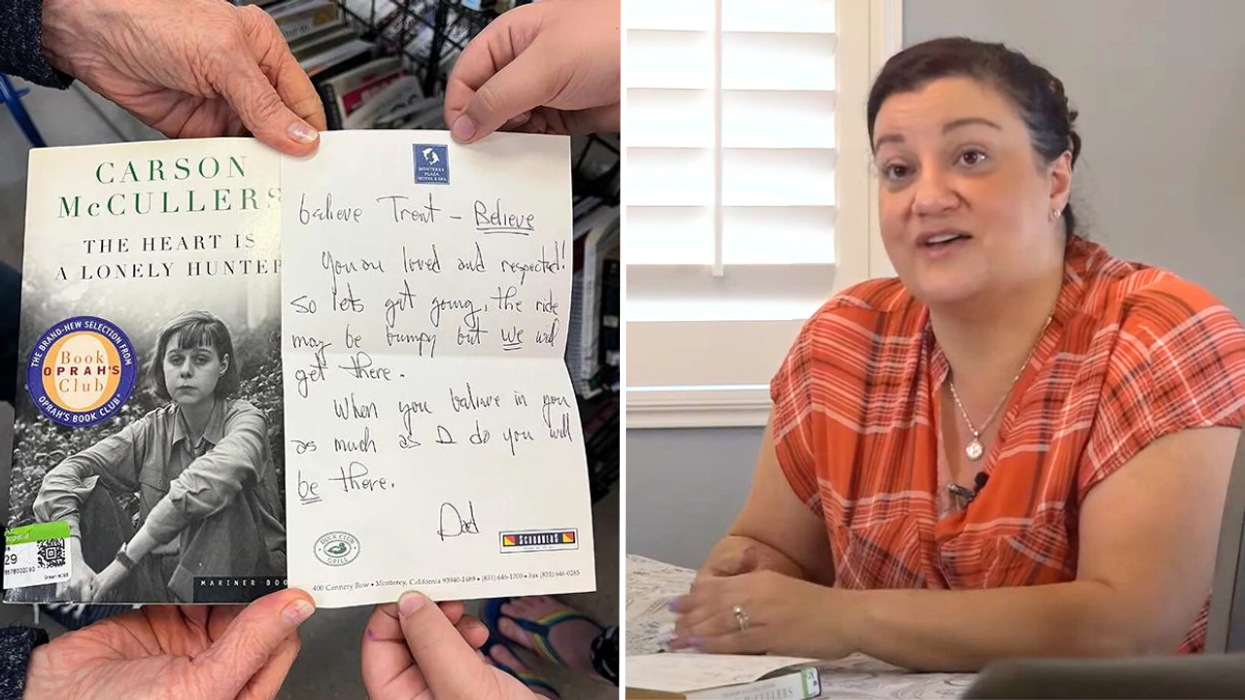 CARSON
McCULLERS
THE HEART IS
A LONELY HUNTER
THE BRAND-NEW SELECTION FROM
Book
OPRAH'S
Club
OPRAH'S BOOK CLUB
29
MARINER BOO
MONTEREY
PLAZA
HOTEL & SPA
balieve Trent – Believe
You are loved and respected!
So lets get going, the ride
may be bumpy but we will
get there.
When you balieve in you
as much as I do you will
be there.
Dad
DUCK CLUB
GRILL
SCHOONERS
400 Cannery Row • Monterey, California 93940-1489 • (831) 646-1700 • Fax (831) 646-0285